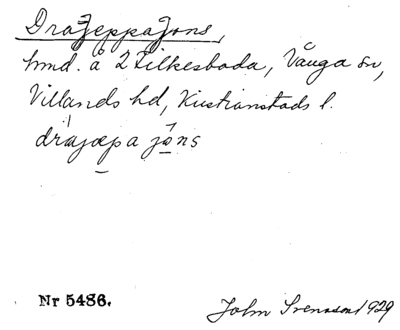 DraJeppaJons,
hmd. å 2 Filkesboda, Vånga sn,
Villands hd, Kristianstads l.
drájæpa jòns
Nr 5486.
John Svensson 1929